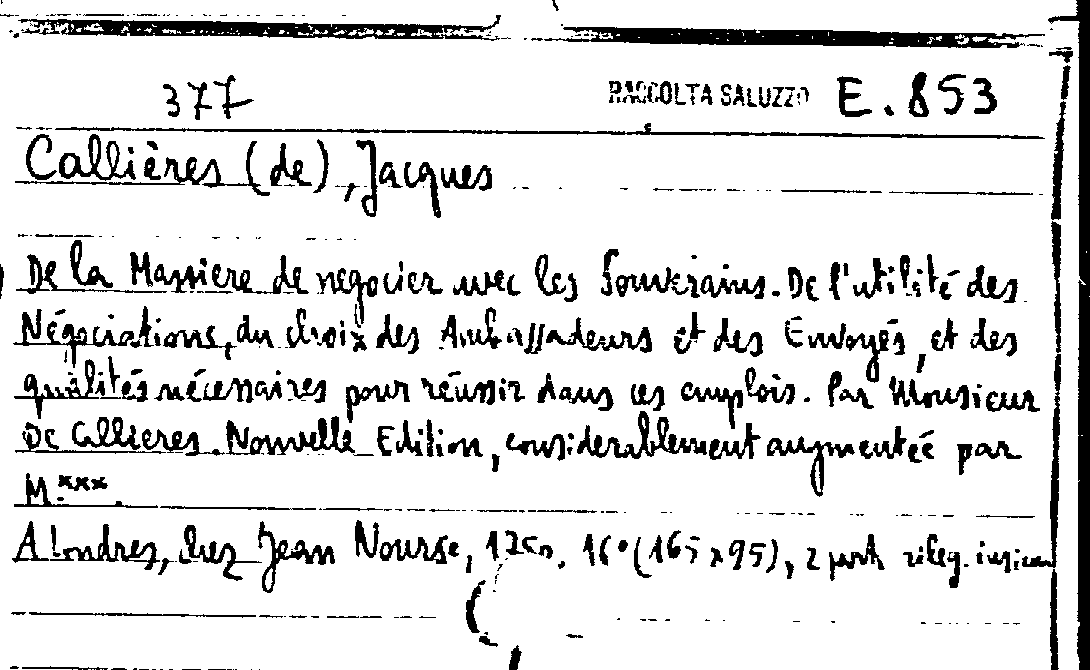 377 RACCOLTA SALUZZO E.853
Callières (de), Jacques
De la Maniere de negocier avec les Souverains. De l'utilité des
Négociations, du choix des Ambassadeurs et des Envoyés, et des
qualités nécessaires pour réussir dans ces emplois. Par Monsieur
De Callieres. Nouvelle Edition, considerablement augmenteé par
M.xxx.
A Londres, chez Jean Nourse, 1750, 16° (165x95), 2 parti rileg.